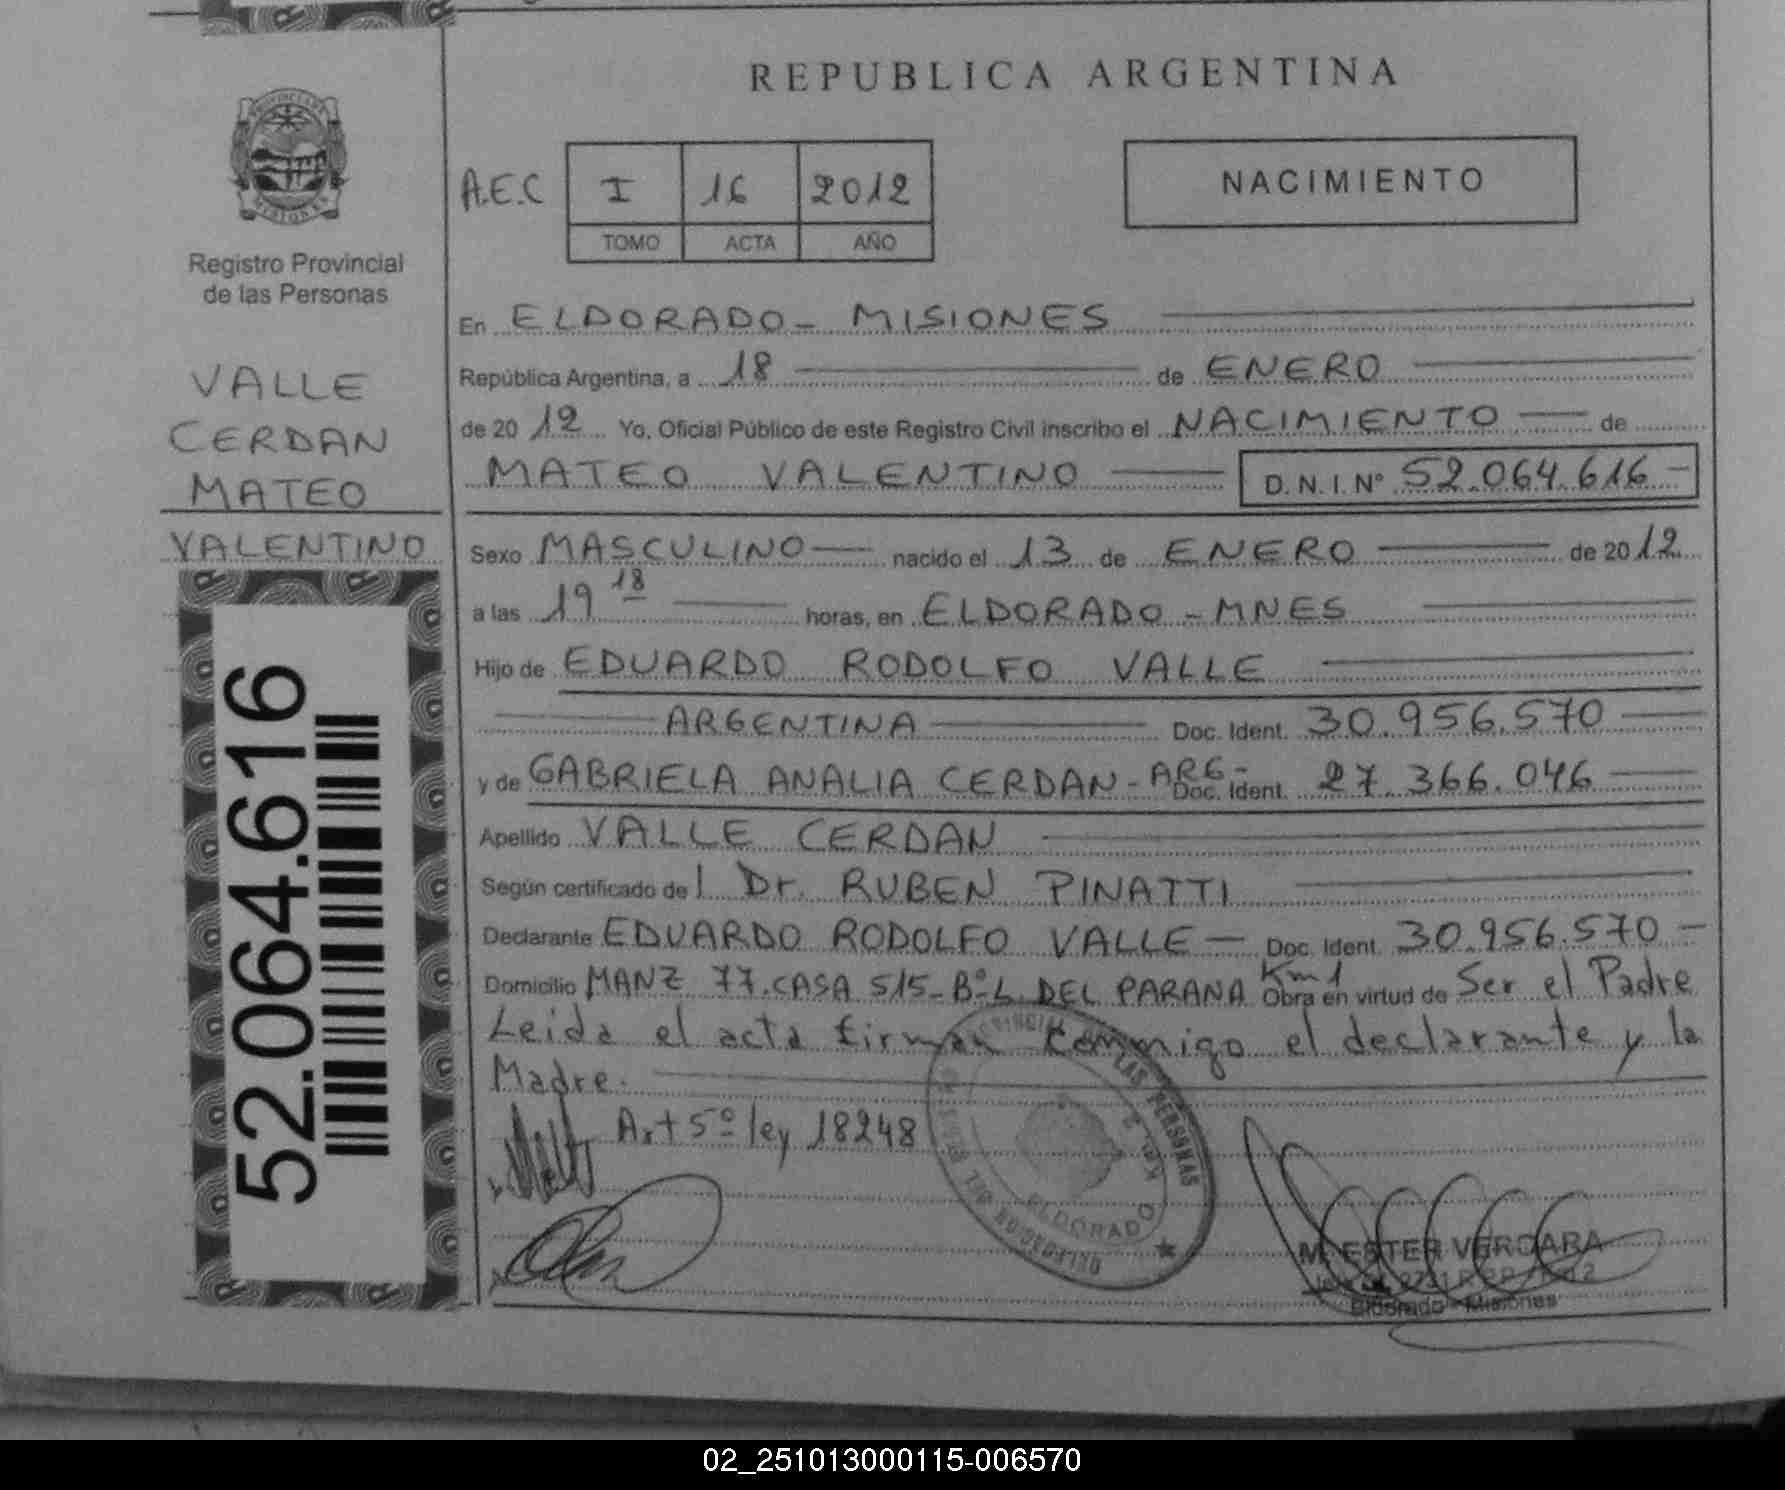 REPUBLICA ARGENTINA
PROVINCIA DE
MISIONES
Registro Provincial
de las Personas
A.E.C I 16 2012
TOMO ACTA AÑO
NACIMIENTO
En ELDORADO - MISIONES
República Argentina, a 18 de ENERO
de 2012 Yo, Oficial Público de este Registro Civil inscribo el NACIMIENTO de
MATEO VALENTINO D.N.I. Nº 52.064.616-
VALLE
CERDAN
MATEO
VALENTINO
52.064.616
Sexo MASCULINO nacido el 13 de ENERO de 2012
a las 19 18 horas, en ELDORADO - MNES
Hijo de EDUARDO RODOLFO VALLE
ARGENTINA Doc. Ident. 30.956.570
y de GABRIELA ANALIA CERDAN - ARG- Doc. Ident. 27.366.046
Apellido VALLE CERDAN
Según certificado de l Dr. RUBEN PINATTI
Declarante EDUARDO RODOLFO VALLE - Doc. Ident. 30.956.570 -
Domicilio MANZ 77. CASA 515 - Bº L. DEL PARANA Km 1 Obra en virtud de Ser el Padre
Leida el acta firman conmigo el declarante y la
Madre.
Art 5º ley 18248
PROVINCIAL DE LAS PERSONAS
Km. 2
ELDORADO
M. ESTER VERGARA
Eldorado - Misiones
02_251013000115-006570